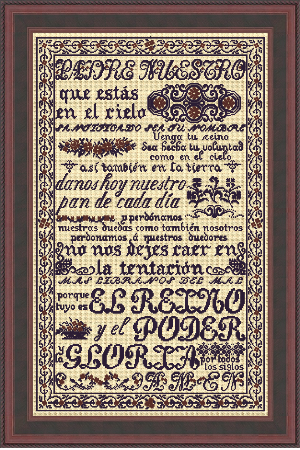 PADRE NUESTRO
que estás
en el cielo
SANTIFICADO SEA TU NOMBRE
Venga tu reino
Sea hecha tu voluntad
como en el cielo
así también en la tierra
danos hoy nuestro
pan de cada día
y perdónanos
nuestras deudas como también nosotros
perdonamos á nuestros deudores
no nos dejes caer en
la tentación
MAS LIBRANOS DEL MAL
porque
tuyo es EL REINO
y el PODER
la GLORIA
por todos
los siglos
AMEN